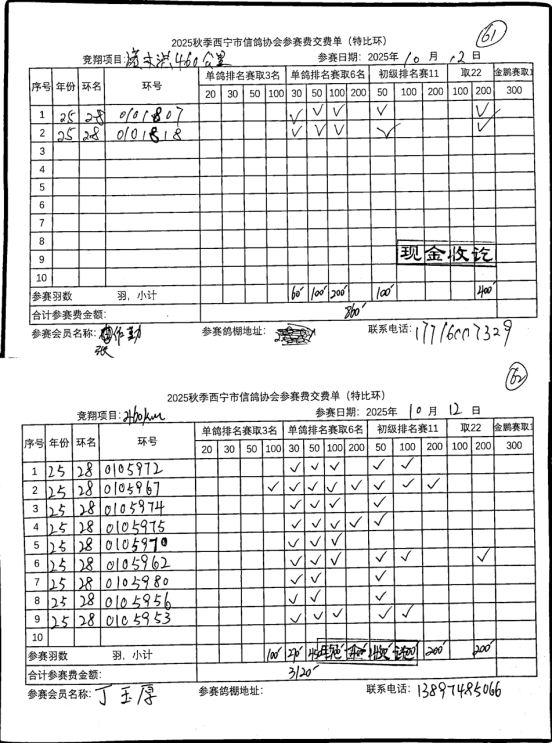 61
2025秋季西宁市信鸽协会参赛费交费单（特比环）
竞翔项目：460公里 参赛日期：2025年10月12日
序号 年份 环名 环号 单鸽排名赛取3名 单鸽排名赛取6名 初级排名赛11 取22 金鹏赛取1
20 30 50 100 30 50 100 200 50 100 200 100 200 300
1 25 28 0101807 ✓ ✓ ✓ ✓ ✓
2 25 28 0101818 ✓ ✓ ✓ ✓ ✓
3
4
5
6
7
8
9
现金收讫
10
参赛羽数 羽，小计 60 100 200 100 400
合计参赛费金额： 860
参赛会员名称：张作勤 参赛鸽棚地址： 联系电话：17716007329
62
2025秋季西宁市信鸽协会参赛费交费单（特比环）
竞翔项目：460km 参赛日期：2025年10月12日
序号 年份 环名 环号 单鸽排名赛取3名 单鸽排名赛取6名 初级排名赛11 取22 金鹏赛取1
20 30 50 100 30 50 100 200 50 100 200 100 200 300
1 25 28 0105972 ✓ ✓ ✓ ✓ ✓
2 25 28 0105967 ✓ ✓ ✓ ✓ ✓ ✓ ✓ ✓
3 25 28 0105974 ✓ ✓ ✓ ✓
4 25 28 0105975 ✓ ✓ ✓ ✓ ✓
5 25 28 0105970 ✓ ✓ ✓
6 25 28 0105962 ✓ ✓ ✓ ✓ ✓ ✓
7 25 28 0105980 ✓ ✓ ✓
8 25 28 0105956 ✓ ✓ ✓
9 25 28 0105953 ✓ ✓ ✓ ✓ ✓
10
参赛羽数 羽，小计 100 270 200 200
合计参赛费金额： 3120
参赛会员名称：丁玉厚 参赛鸽棚地址： 联系电话：13897485066